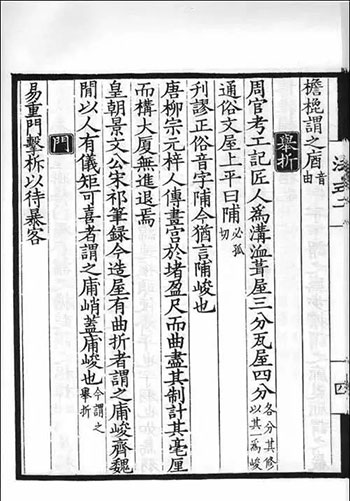 檐㮰謂之庮音由
舉折
周官考工記匠人爲溝洫葺屋三分瓦屋四分各分其修以其一爲峻
通俗文屋上平曰陠必孤切
刊謬正俗音字陠今猶言陠峻也
唐柳宗元梓人傳畫宮於堵盈尺而曲盡其制計其毫厘
而構大厦無進退焉
皇朝景文公宋祁筆録今造屋有曲折者謂之庯峻齊魏
閒以人有儀矩可喜者謂之庯峭蓋庯峻也今謂之舉折
門
易重門擊柝以待暴客
四